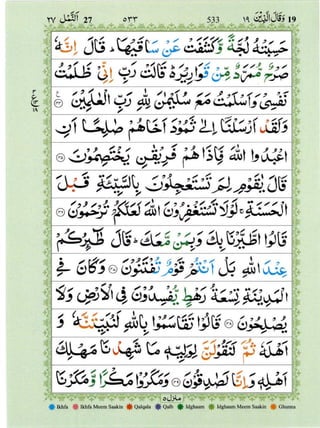 ٢٧ النَّمْل 27 ٥٣٣ 533 وَقَالَ الَّذِيْنَ ١٩ 19
حَسِبَتْهُ لُجَّةً وَّكَشَفَتْ عَنْ سَاقَيْهَا ؕ قَالَ اِنَّهٗ
صَرْحٌ مُّمَرَّدٌ مِّنْ قَوَارِيْرَ ؕ۬ قَالَتْ رَبِّ اِنِّىْ ظَلَمْتُ
نَفْسِىْ وَاَسْلَمْتُ مَعَ سُلَيْمٰنَ لِلّٰهِ رَبِّ الْعٰلَمِيْنَ ۞
وَلَقَدْ اَرْسَلْنَاۤ اِلٰى ثَمُوْدَ اَخَاهُمْ صٰلِحًا اَنِ
اعْبُدُوا اللّٰهَ فَاِذَا هُمْ فَرِيْقٰنِ يَخْتَصِمُوْنَ ۞
قَالَ يٰقَوْمِ لِمَ تَسْتَعْجِلُوْنَ بِالسَّيِّئَةِ قَبْلَ
الْحَسَنَةِ ۚ لَوْلَا تَسْتَغْفِرُوْنَ اللّٰهَ لَعَلَّكُمْ تُرْحَمُوْنَ ۞
قَالُوا اطَّيَّرْنَا بِكَ وَبِمَنْ مَّعَكَ ؕ قَالَ طٰٓئِرُكُمْ
عِنْدَ اللّٰهِ بَلْ اَنْتُمْ قَوْمٌ تُفْتَنُوْنَ ۞ وَكَانَ فِى
الْمَدِيْنَةِ تِسْعَةُ رَهْطٍ يُّفْسِدُوْنَ فِى الْاَرْضِ وَلَا
يُصْلِحُوْنَ ۞ قَالُوْا تَقَاسَمُوْا بِاللّٰهِ لَنُبَيِّتَنَّهٗ وَ
اَهْلَهٗ ثُمَّ لَنَقُوْلَنَّ لِوَلِيِّهٖ مَا شَهِدْنَا مَهْلِكَ
اَهْلِهٖ وَاِنَّا لَصٰدِقُوْنَ ۞ وَمَكَرُوْا مَكْرًا وَّمَكَرْنَا
منزل ٥
Ikhfa Ikhfa Meem Saakin Qalqala Qalb Idghaam Idghaam Meem Saakin Ghunna